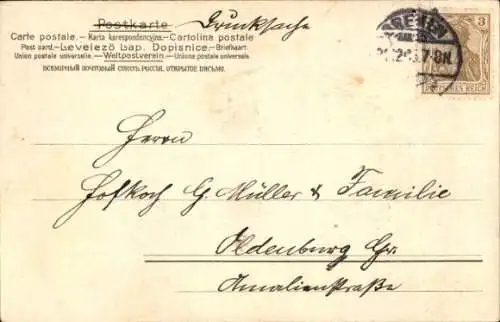 Postkarte Drucksache
Carte postale. — Karta korespondencyjna. — Cartolina postale
Post card. — Levelező Lap. Dopisnice. — Briefkaart.
Union postale universelle. — Weltpostverein. — Unione postale universale
ВСЕМІРНЫЙ ПОЧТОВЫЙ СОЮЗЪ. РОССІЯ. ОТКРЫТОЕ ПИСЬМО.
BREMEN
7-8N.
3
DEUTSCHES REICH
Herrn
Hofkoch G. Müller & Familie
Oldenburg Gr.
Amalienstraße